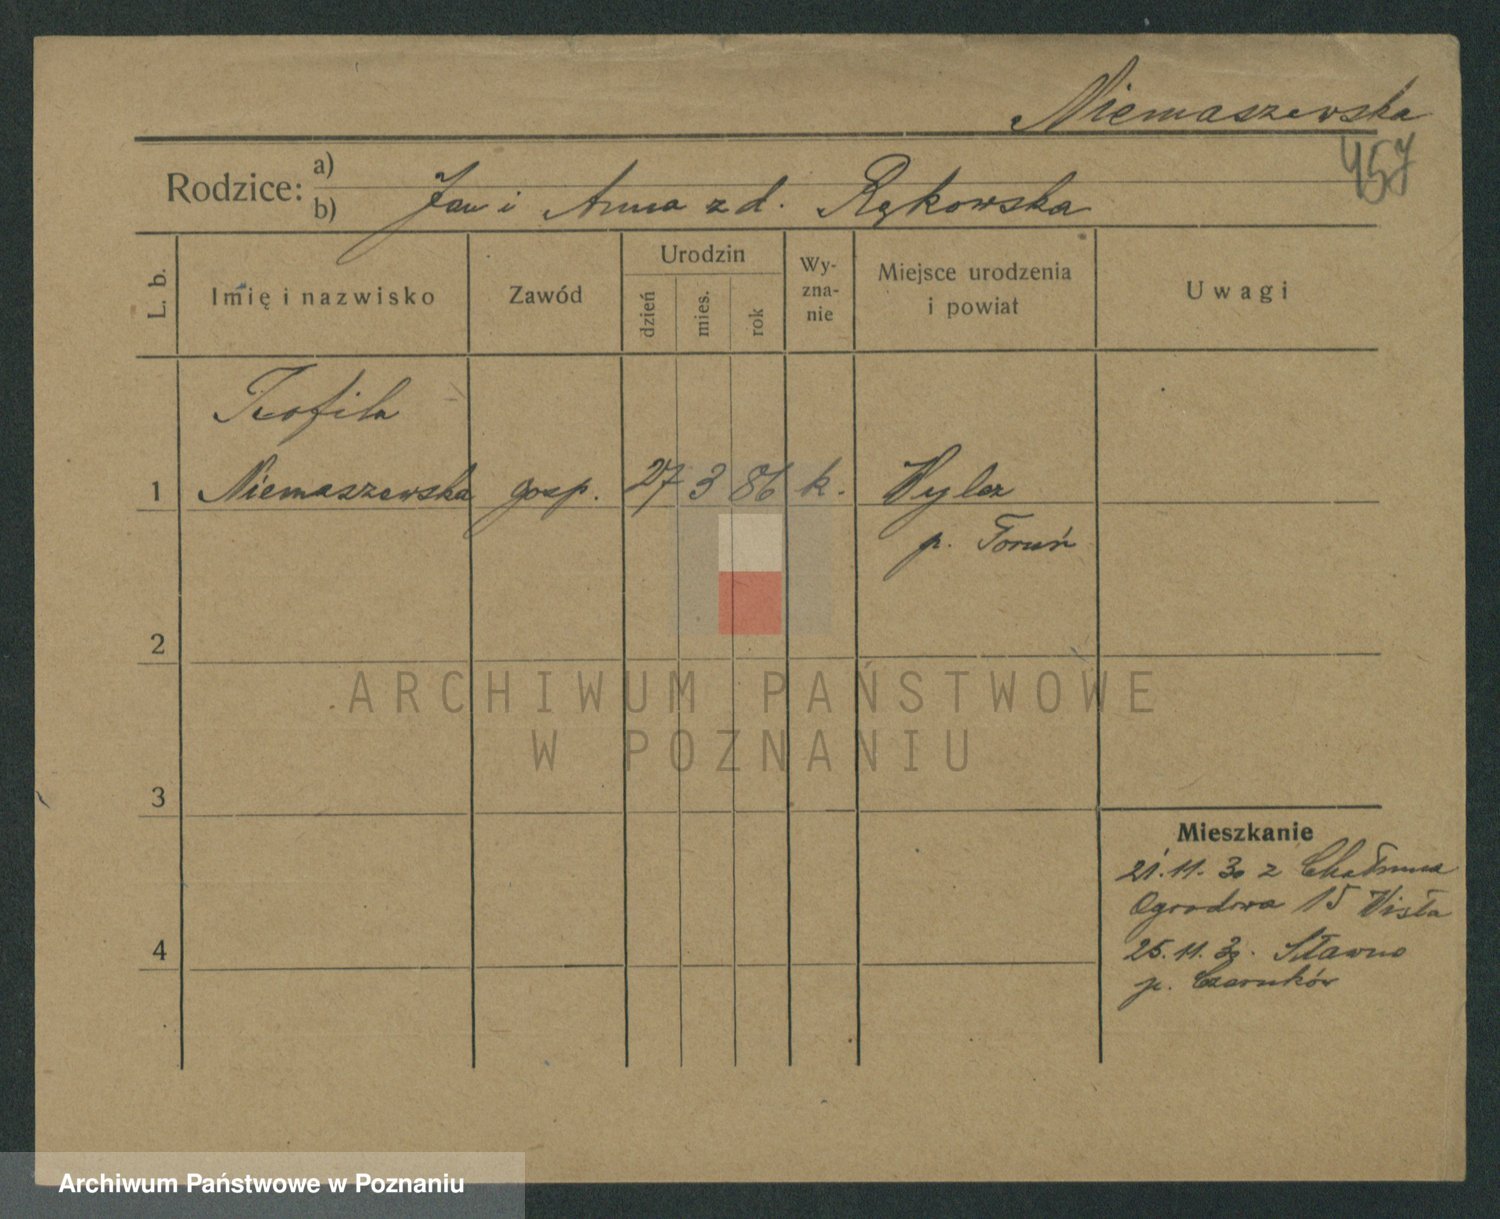 Niemaszewska
457
Rodzice: a)
b) Jan i Anna z d. Rękowska
L. b.
Imię i nazwisko
Zawód
Urodzin
dzień
mies.
rok
Wy-
zna-
nie
Miejsce urodzenia
i powiat
Uwagi
Teofila
1 Niemaszewska gosp. 27 3 86 k.
p. Toruń
2
ARCHIWUM PAŃSTWOWE
W POZNANIU
3
Mieszkanie
21.11.30 z
Ogrodowa 15
4
25.11.30. Sławno
p. Czarnków
Archiwum Państwowe w Poznaniu